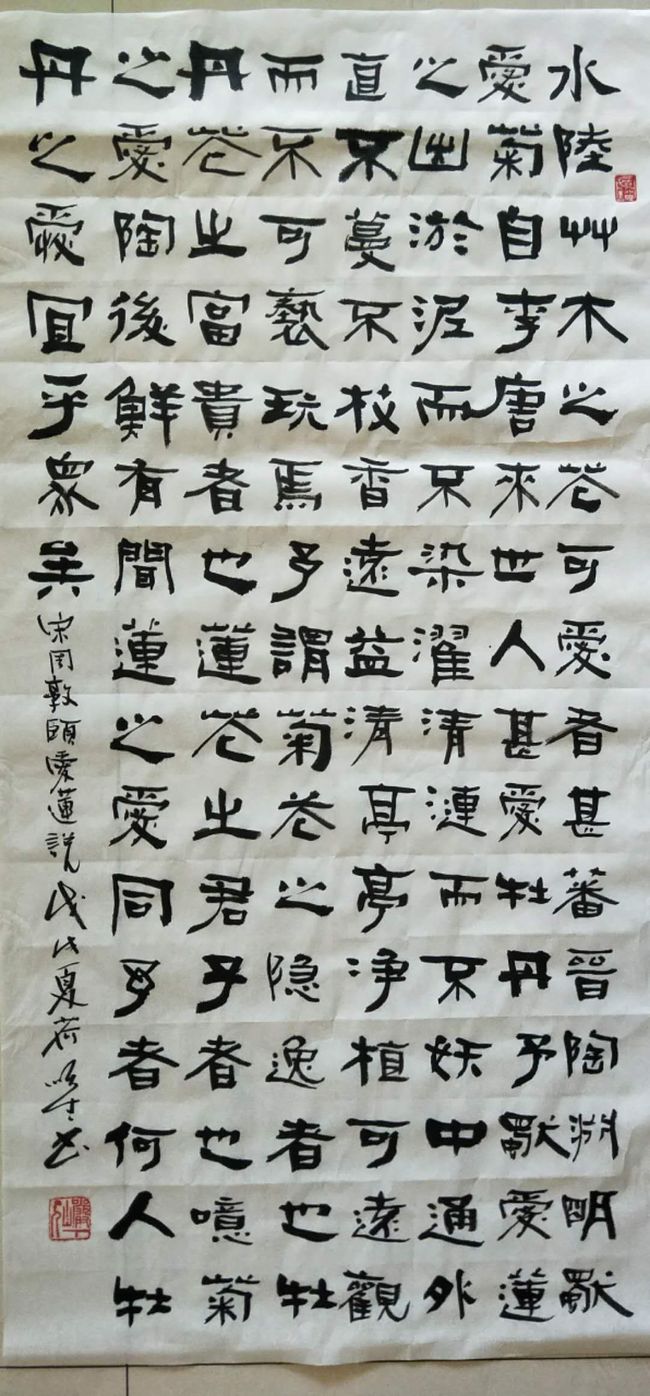 水陸艸木之花可愛者甚蕃晉陶渊明獨
愛菊自李唐來世人甚愛牡丹予獨愛蓮
之出淤泥而不染濯清漣而不妖中通外
直不蔓不枝香遠益清亭亭净植可遠觀
而不可褻玩焉予謂菊花之隐逸者也牡
丹花之富貴者也蓮花之君子者也噫菊
之愛陶後鮮有聞蓮之愛同予者何人牡
丹之愛宜乎眾矣
宋周敦頤愛蓮説戊戌夏荷